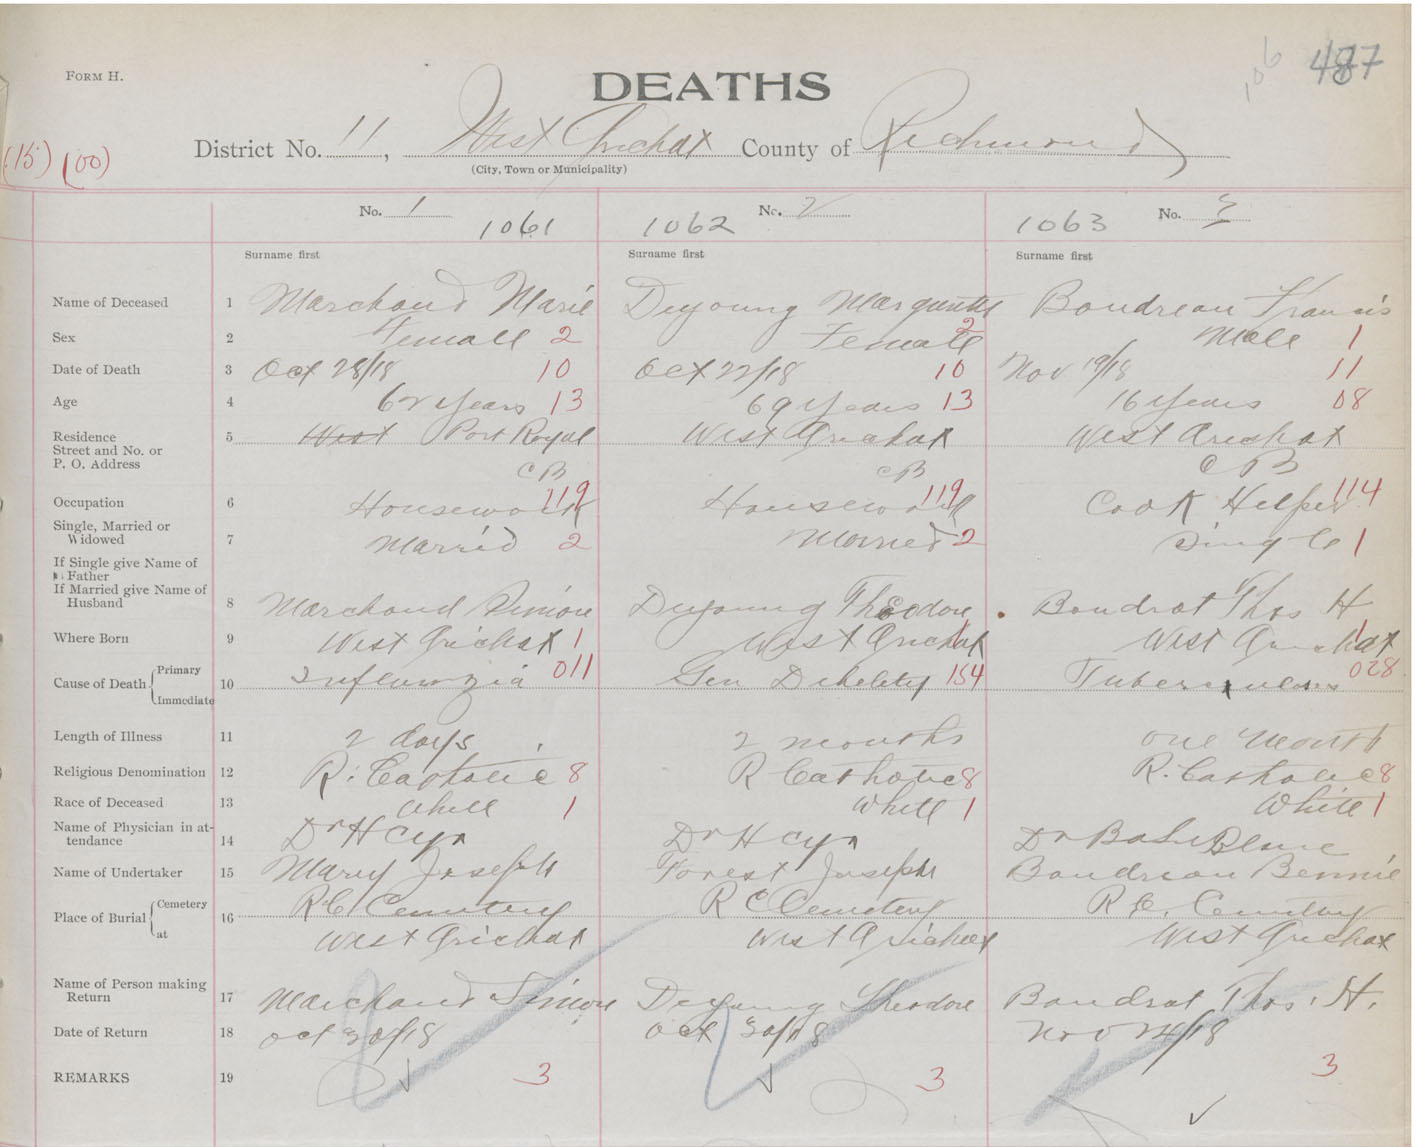 FORM H.
DEATHS
106 487
(15) (00)
District No. 11, West Arichat County of Richmond
(City, Town or Municipality)
No. 1 No. 2 No. 3
1061 1062 1063
Surname first Surname first Surname first
Name of Deceased 1 Marchand Marie Deyoung Boudreau Francis
Sex 2 Female 2 Female 2 Male 1
Date of Death 3 Oct 28/18 10 Oct 22/18 10 Nov 19/18 11
Age 4 62 Years 13 69 Years 13 16 Years 08
Residence 5 West Port Royal West Arichat West Arichat
Street and No. or
P. O. Address CB CB CB
Occupation 6 Housework 119 Housework 119 Cook Helper 114
Single, Married or
Widowed 7 Married 2 Married 2 Single 1
If Single give Name of
Father
If Married give Name of
Husband 8 Marchand Simon Deyoung Theodore Boudrot Thos H
Where Born 9 West Arichat 1 West Arichat 1 West Arichat 1
Cause of Death Primary Immediate 10 Influenzia 011 Gen Debelety 154 Tuberculosis 028
Length of Illness 11 2 days 2 months one month
Religious Denomination 12 R. Catholic 8 R Catholic 8 R. Catholic 8
Race of Deceased 13 White 1 White 1 White 1
Name of Physician in at-
tendance 14 Dr H Cyr Dr H Cyr Dr
Name of Undertaker 15 Joseph Forest Joseph Boudreau Bennie
Place of Burial Cemetery at 16 R C Cemetery R C Cemetery R C. Cemetery
West Arichat West Arichat West Arichat
Name of Person making
Return 17 Marchand Simon Deyoung Theodore Boudrot Thos. H.
Date of Return 18 Oct 30/18 Oct 30/18 Nov 24/18
REMARKS 19 3 3 3